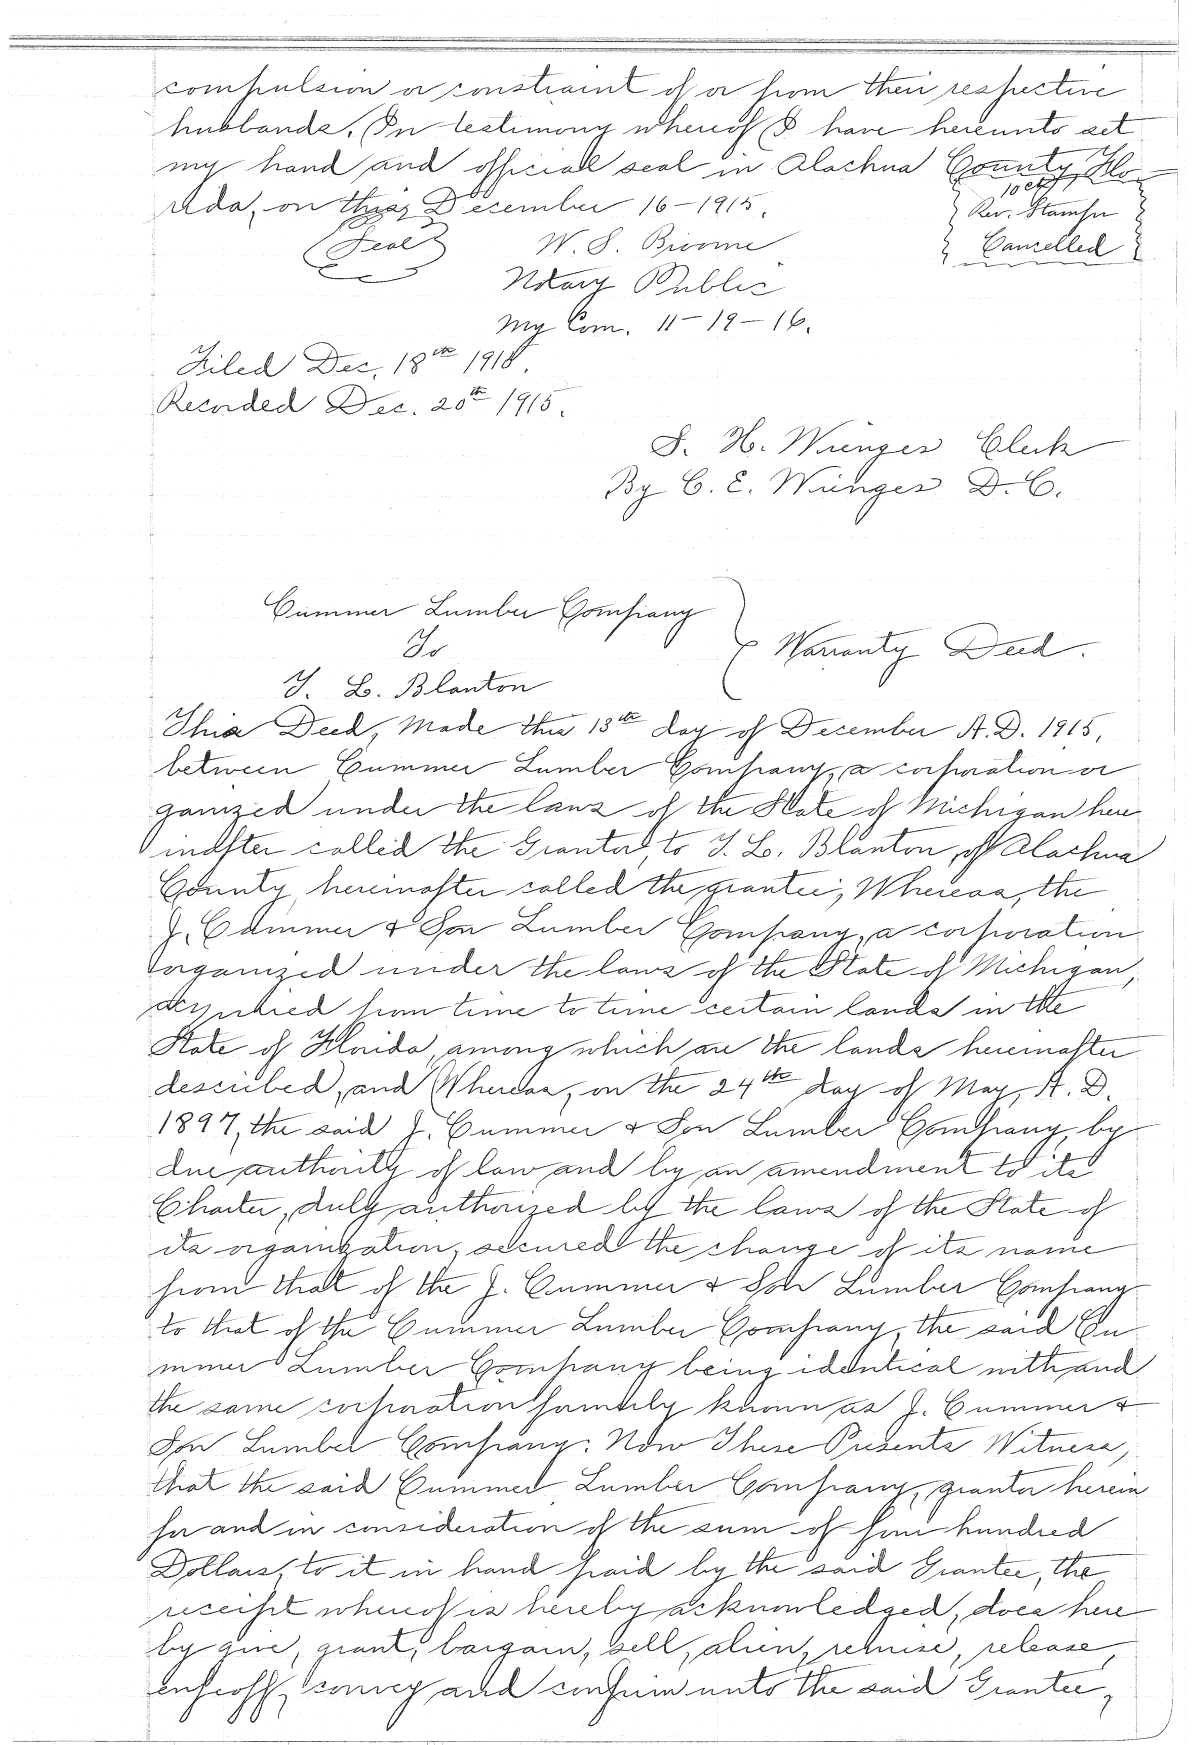 compulsion or constraint of or from their respective
husbands. In testimony whereof I have hereunto set
my hand and official seal in Alachua County, Flo-
rida, on this December 16-1915.
10ct
Rev. Stamp
Cancelled
(Seal)
W. S. Broome
Notary Public
My Com. 11-19-16.
Filed Dec. 18th 1915.
Recorded Dec. 20th 1915.
S. H. Wienges Clerk
By C. E. Wienges D.C.
Cummer Lumber Company
To
T. L. Blanton
Warranty Deed.
This Deed, Made this 13th day of December A.D. 1915,
between Cummer Lumber Company, a corporation or
ganized under the laws of the State of Michigan here
inafter called the Grantor, to T. L. Blanton, of Alachua
County, hereinafter called the grantee; Whereas, the
J. Cummer & Son Lumber Company, a corporation
organized under the laws of the State of Michigan,
acquired from time to time certain lands in the
State of Florida, among which are the lands hereinafter
described, and Whereas, on the 24th day of May, A.D.
1897, the said J. Cummer & Son Lumber Company, by
due authority of law and by an amendment to its
Charter, duly authorized by the laws of the State of
its organization, secured the change of its name
from that of the J. Cummer & Son Lumber Company
to that of the Cummer Lumber Company, the said Cu
mmer Lumber Company being identical with and
the same corporation formerly known as J. Cummer &
Son Lumber Company: Now These Presents Witness,
that the said Cummer Lumber Company, grantor herein
for and in consideration of the sum of four hundred
Dollars, to it in hand paid by the said Grantee, the
receipt whereof is hereby acknowledged, does here
by give, grant, bargain, sell, alien, remise, release,
enfeoff, convey and confirm unto the said Grantee,